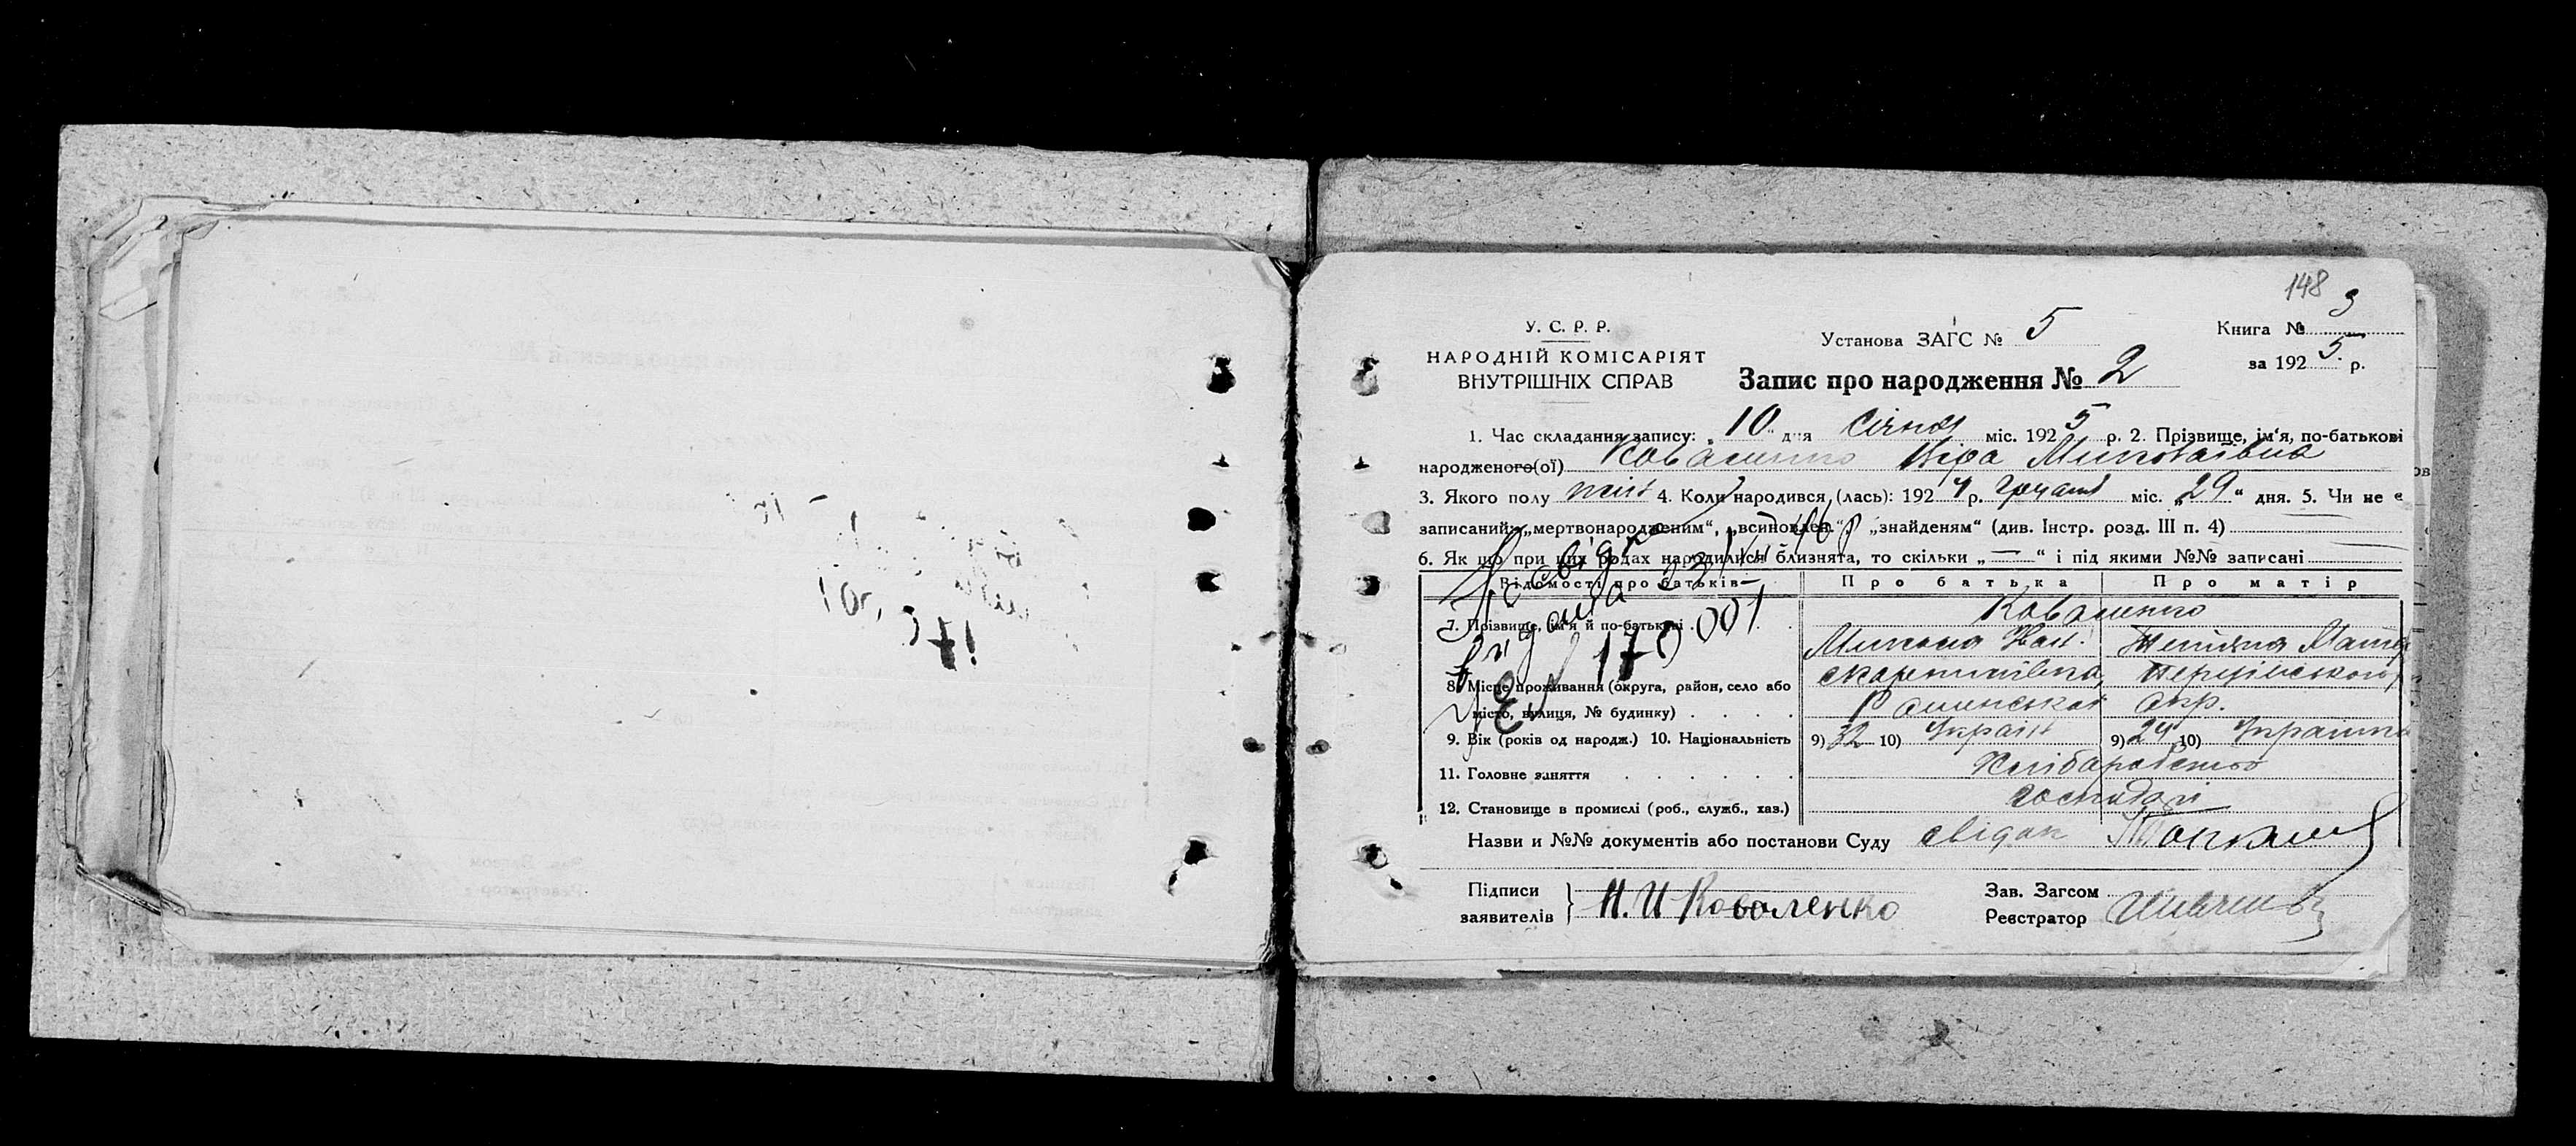 148
У. С. Р. Р.
НАРОДНІЙ КОМІСАРІЯТ
ВНУТРІШНІХ СПРАВ
Установа ЗАГС № 5
Книга № 3
за 1925 р.
Запис про народження № 2
1. Час складання запису: „10“ дня Січня міс. 1925 р. 2. Прізвище, ім'я, по-батькові
народженого(ої) Коваленко Віра Миколаївна
3. Якого полу жін 4. Коли народився (лась): 1924 р. Грудня міс. „29“ дня. 5. Чи не є
записаний „мертвонародженим“, „всиновлен.“, „знайденям“ (див. Інстр. розд. III п. 4)
6. Як що при цих родах народилися близнята, то скільки „—“ і під якими №№ записані
Відомості про батьків— Про батька Про матір
7. Прізвище, ім'я й по-батькові Коваленко
Микола Тетяна
8. Місце проживання (округа, район, село або
місто, вулиця, № будинку) Роменської окр.
9. Вік (років од народж.) 10. Національність 9) 32 10) Україн 9) 24 10) Українка
11. Головне заняття Хліборобство
12. Становище в промислі (роб., служб., хаз.) господарі
Назви и №№ документів або постанови Суду свідки
Підписи
заявителів } Н. И Коваленко
Зав. Загсом
Реєстратор